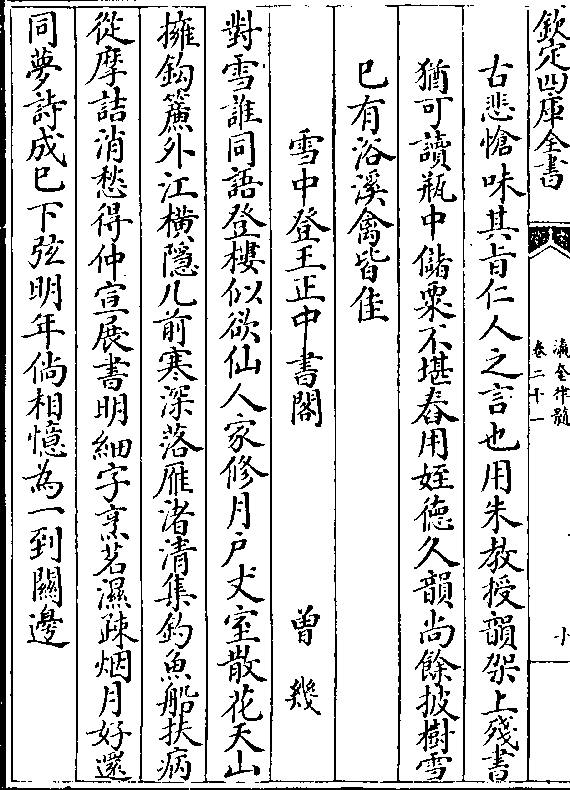 欽定四庫全書
瀛奎律髓
卷二十一
十
古悲愴味其旨仁人之言也用朱教授韻架上殘書
猶可讀瓶中儲粟不堪舂用姪德久韻尚餘披樹雪
已有浴溪禽皆佳
雪中登王正中書閣 曾幾
對雪誰同語登樓似欲仙人家修月戶丈室散花天山
擁鈎簾外江橫隱几前寒深落雁渚清集釣魚船扶病
從摩詰消愁得仲宣展書明細字烹茗濕疎烟月好還
同夢詩成已下弦明年倘相憶為一到關邊